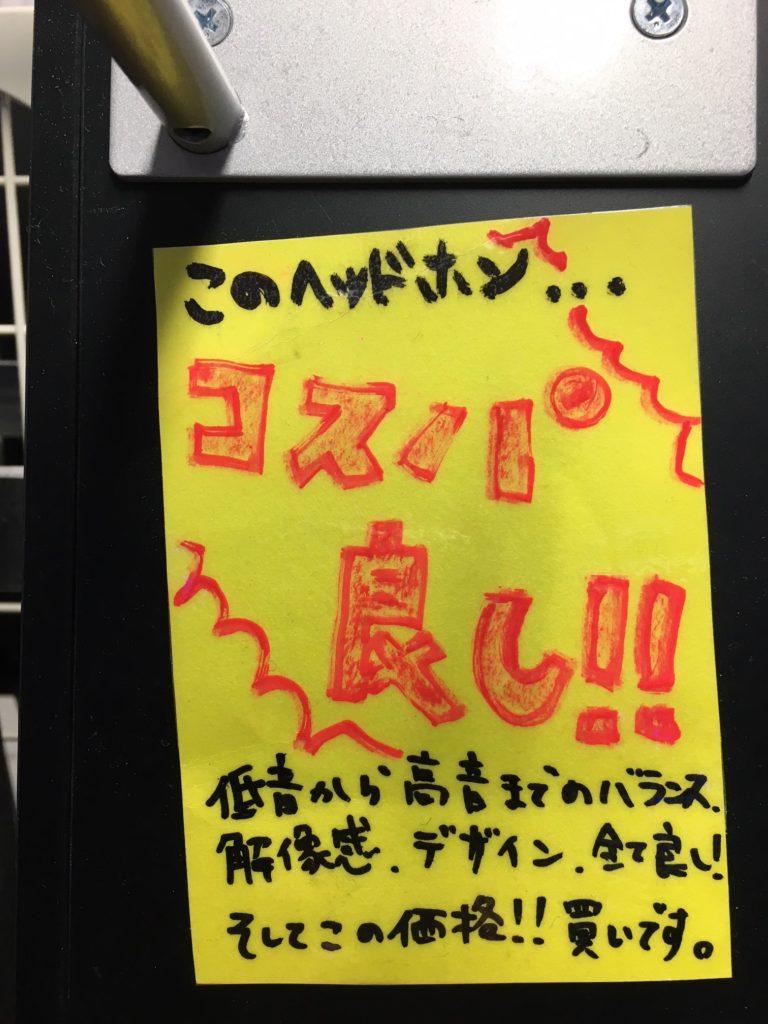 このヘッドホン...
コスパ
良し!!
低音から高音までのバランス、
解像感、デザイン、全て良し!
そしてこの価格!!買いです。